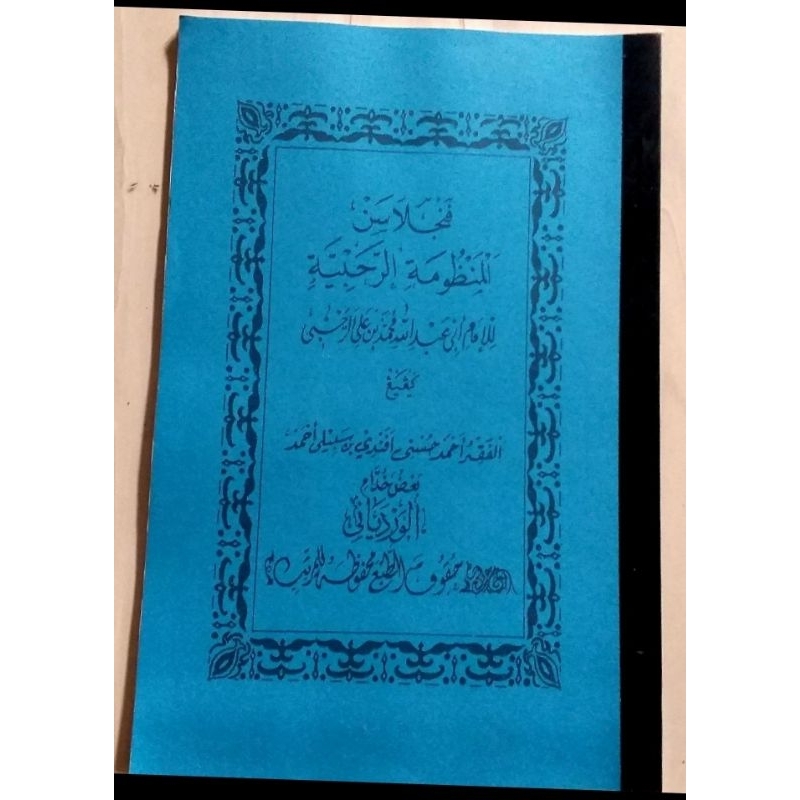 فنجلاسن
المَنْظُومَةِ الرَّحَبِيَّةِ
لِلإمَام أبى عَبدِ اللّٰه مُحَمَّد بْن عَلى الرَّحَبىّ
كڤيڠ
الفقير أحمَد حُسَيْنى أفَنْدِيْ بن سيبلى أحمَد
بَعْضُ خُدَّامِ
الوَرْدِيَانِي
حقوق الطبع محفوظة للمرتب